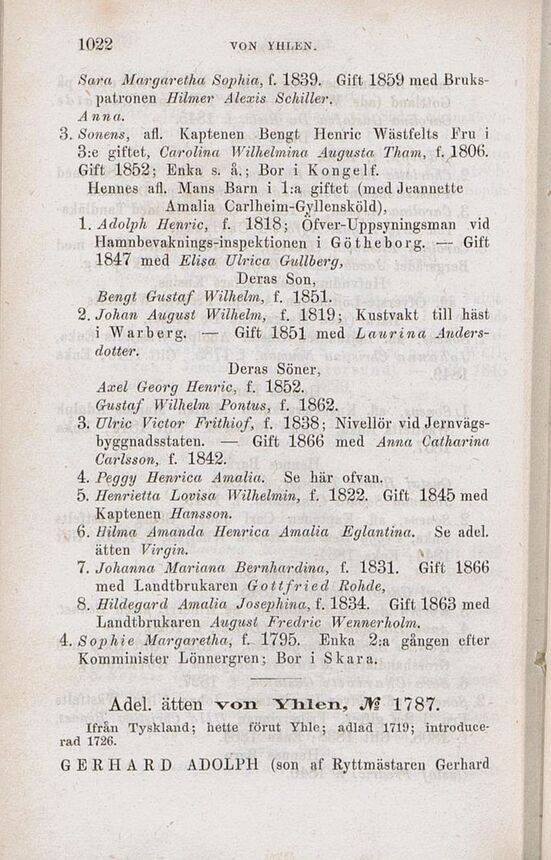 1022 VON YHLEN.
Sara Margaretha Sophia, f. 1839. Gift 1859 med Bruks-
patronen Hilmer Alexis Schiller.
Anna.
3. Sonens, afl. Kaptenen Bengt Henric Wästfelts Fru i
3:e giftet, Carolina Wilhelmina Augusta Tham, f. 1806.
Gift 1852; Enka s. å.; Bor i Kongelf.
Hennes afl. Mans Barn i 1:a giftet (med Jeannette
Amalia Carlheim-Gyllensköld),
1. Adolph Henric, f. 1818; Öfver-Uppsyningsman vid
Hamnbevaknings-inspektionen i Götheborg. — Gift
1847 med Elisa Ulrica Gullberg,
Deras Son,
Bengt Gustaf Wilhelm, f. 1851.
2. Johan August Wilhelm, f. 1819; Kustvakt till häst
i Warberg. — Gift 1851 med Laurina Anders-
dotter.
Deras Söner,
Axel Georg Henric, f. 1852.
Gustaf Wilhelm Pontus, f. 1862.
3. Ulric Victor Frithiof, f. 1838; Nivellör vid Jernvägs-
byggnadsstaten. — Gift 1866 med Anna Catharina
Carlsson, f. 1842.
4. Peggy Henrica Amalia. Se här ofvan.
5. Henrietta Lovisa Wilhelmin, f. 1822. Gift 1845 med
Kaptenen Hansson.
6. Hilma Amanda Henrica Amalia Eglantina. Se adel.
ätten Virgin.
7. Johanna Mariana Bernhardina, f. 1831. Gift 1866
med Landtbrukaren Gottfried Rohde,
8. Hildegard Amalia Josephina, f. 1834. Gift 1863 med
Landtbrukaren August Fredric Wennerholm.
4. Sophie Margaretha, f. 1795. Enka 2:a gången efter
Komminister Lönnergren; Bor i Skara.
Adel. ätten von Yhlen, № 1787.
Ifrån Tyskland; hette förut Yhle; adlad 1719; introduce-
rad 1726.
GERHARD ADOLPH (son af Ryttmästaren Gerhard